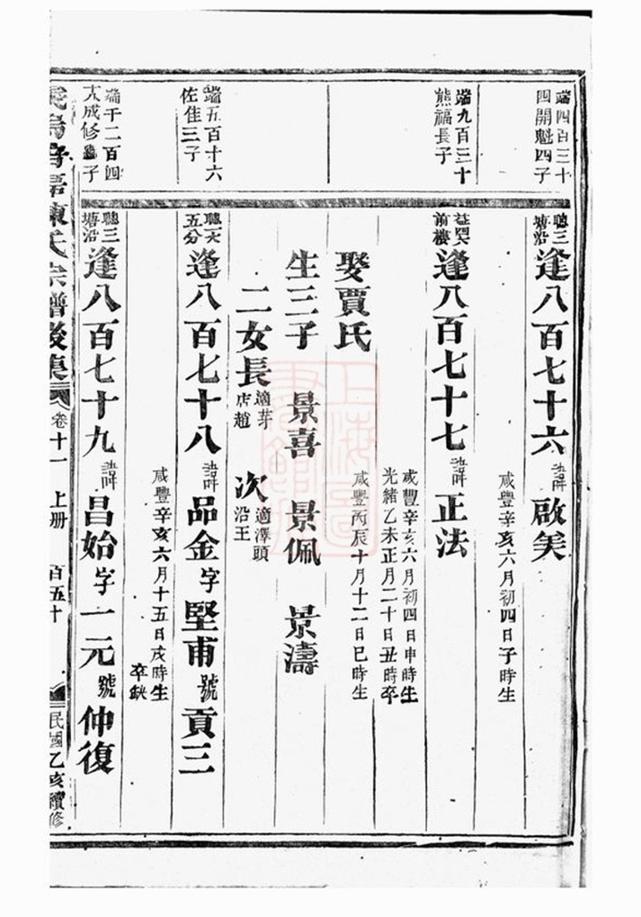 端四百三十
四開魁四子
聰三
塘沿
逢八百七十六
諱
啟美
咸豐辛亥六月初四日子時生
端九百三十
熊福長子
前樓
逢八百七十七
諱
正法
咸豐辛亥六月初四日申時生
光緒乙未正月二十日丑時卒
娶賈氏
咸豐丙辰十月十二日巳時生
生三子
景喜
景佩
景濤
二女長
適芽
店趙
次
適澤頭
沿王
端五百十六
佐佳三子
五分
逢八百七十八
諱
品金
字
堅甫
號
貢三
咸豐辛亥六月十五日戌時生
卒缺
端千二百四
大成修子
聰三
塘沿
逢八百七十九
諱
昌始
字
一元
號
仲復
陳氏宗譜後集
卷十一
上册
百五十
民國乙亥續修